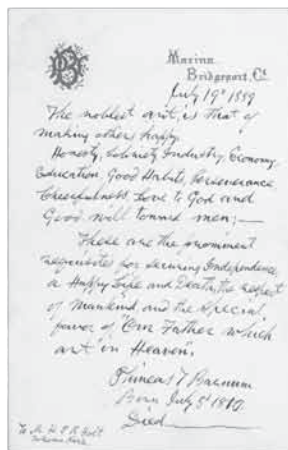 PTB
Marina
Bridgeport, Ct.
July 19th 1889
The noblest art, is that of
making others happy.
Honesty, Sobriety, Industry, Economy
Education, Good Habits, Perseverance
Cheerfulness, Love to God and
Good will toward men; —
These are the prominent
requisites for securing Independence,
a Happy Life and Death, the respect
of Mankind and the Special
favor of "Our Father which
art in Heaven".
Phineas T Barnum
Born July 5th 1810.
Died
To